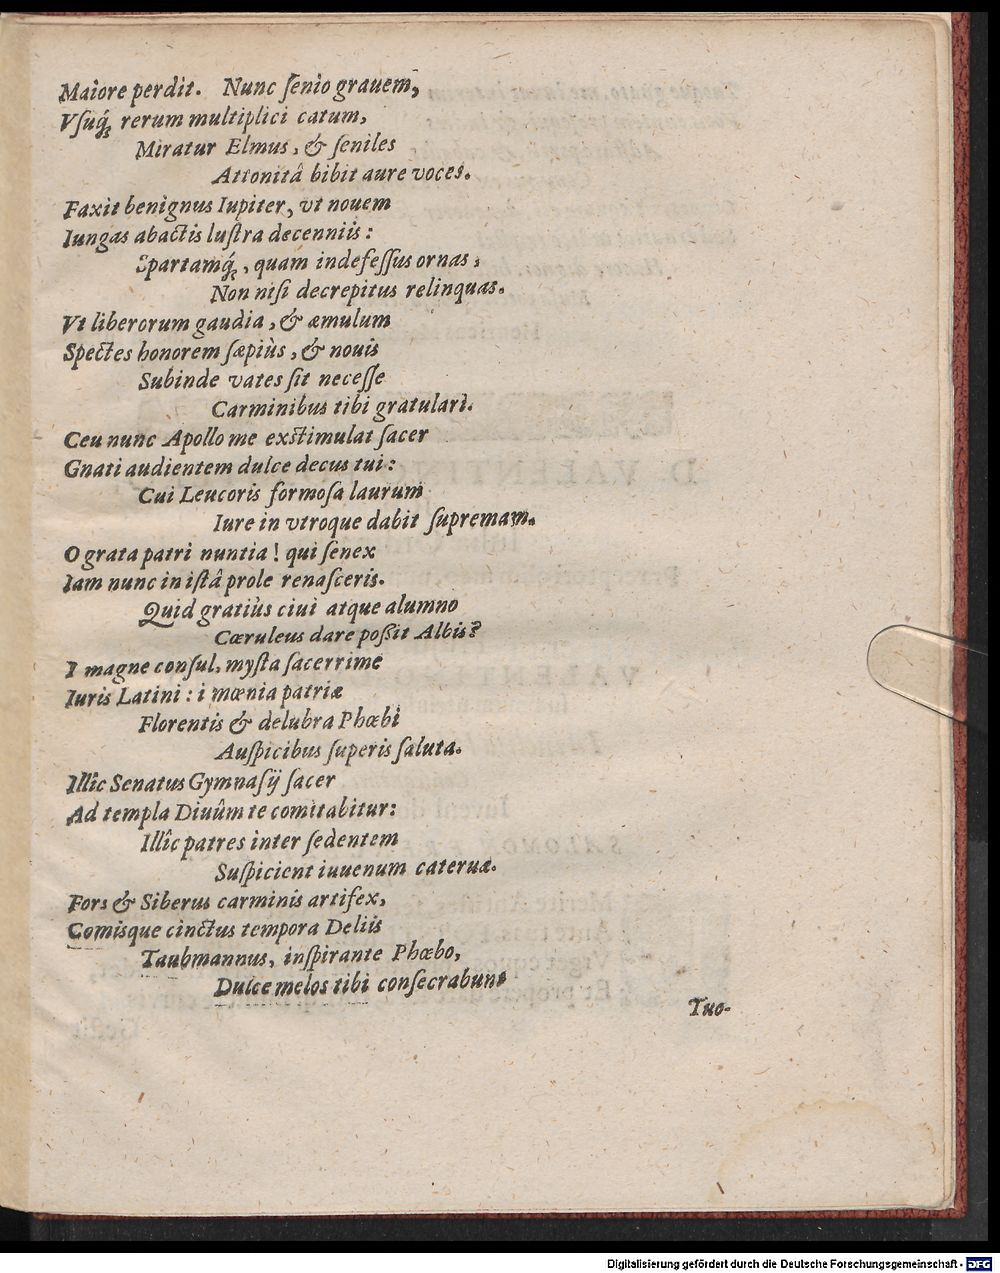 Maiore perdit. Nunc ſenio grauem,
Vſuq́; rerum multiplici catum,
Miratur Elmus, & ſeniles
Attonitâ bibit aure voces.
Faxit benignus Iupiter, vt nouem
Iungas abactis luſtra decenniis:
Spartamq́;, quam indefeſſus ornas,
Non niſi decrepitus relinquas.
Vt liberorum gaudia, & æmulum
Spectes honorem ſæpiùs, & nouis
Subinde vates ſit neceſſe
Carminibus tibi gratulari.
Ceu nunc Apollo me exſtimulat ſacer
Gnati audientem dulce decus tui:
Cui Leucoris formoſa laurum
Iure in vtroque dabit ſupremam.
O grata patri nuntia! qui ſenex
Iam nunc in iſtâ prole renaſceris.
Quid gratiùs ciui atque alumno
Cæruleus dare poſſit Albis?
I magne conſul, myſta ſacerrime
Iuris Latini: i mœnia patriæ
Florentis & delubra Phœbi
Auſpicibus ſuperis ſaluta.
Illîc Senatus Gymnaſij ſacer
Ad templa Diuûm te comitabitur:
Illîc patres inter ſedentem
Suſpicient iuuenum cateruæ.
Fors & Siberus carminis artifex,
Comisque cinctus tempora Deliis
Taubmannus, inſpirante Phœbo,
Dulce melos tibi conſecrabunt
Tuo-
Digitalisierung gefördert durch die Deutsche Forschungsgemeinschaft - DFG